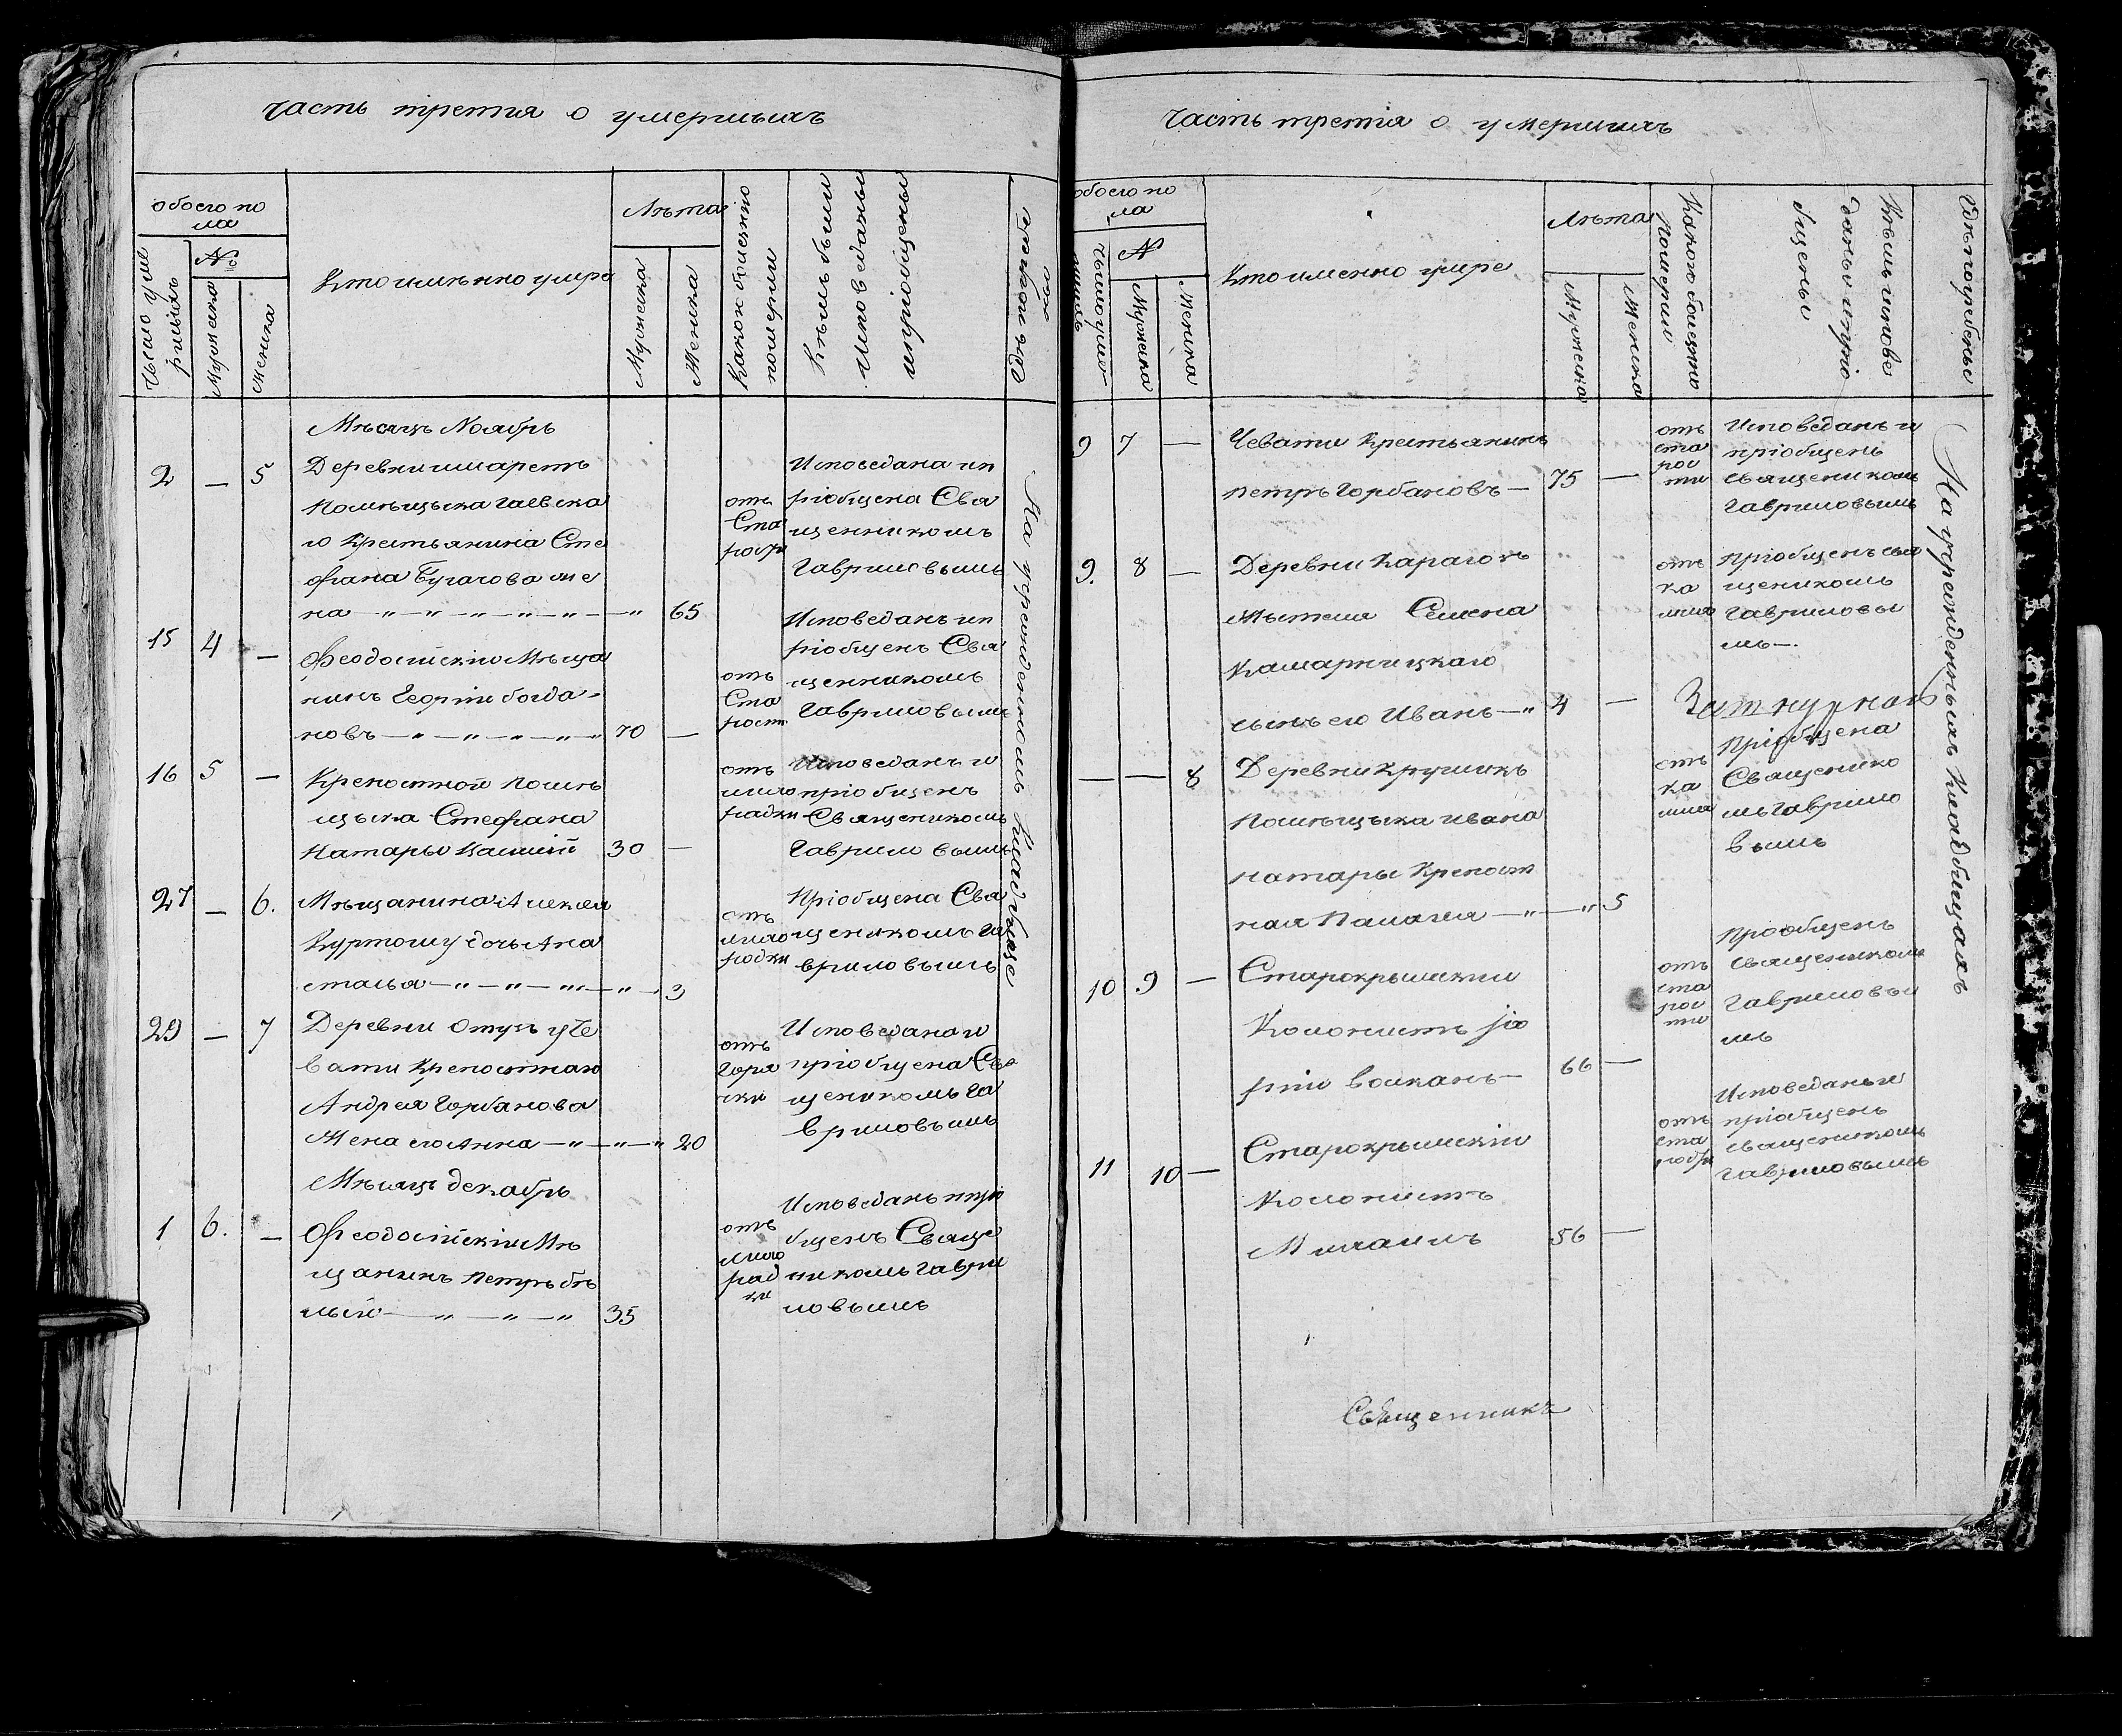 часть третия о умершыхъ
обоего по
ла
№
Число уме
ршыхъ
Мужеска
Женска
Кто имѣнно умре
Лѣта
Мужеска
Женска
Какою болѣзнию
померли
Кѣмъ были
исповеданы
и приобщены
Где погребены
На учрежденномъ кладбище
Мѣсяцъ Ноябрь
2 — 5 Деревни имаретъ
помѣщыка гаевска
го Крестьянина Сте
фана Бугагова же
на — 65
отъ
Ста
рости
Исповедана ип
ріобщена Свя
щенникомъ
Гавриловымъ
15 4 — Феодосійскій Мѣща
нинъ Георгій богда-
новъ — 70 —
отъ
Ста
рости
Исповеданъ ип
ріобщенъ Свя
щенникомъ
Гавриловымъ
16 5 — Крепостной помѣ
щыка Стефана
Натары 30 —
отъ
лихо
радки
Исповеданъ и
пріобщенъ
Священикомъ
Гавриловымъ
27 — 6. Мѣщанина Алексея
Куртоглу дочь Ана
стасья — 3
отъ
лихо
радки
Пріобщена Свя
щеникомъ Га
вриловымъ
29 — 7 Деревни Отузъ уче
вати Крепостнаго
Андрея Горбанова
Жена его Анна — 20
отъ
Горя
чки
Исповедана и
пріобщена Свя
щеникомъ Га
вриловымъ
Мѣсяцъ декабрь
1 6. — Феодосійскій Мѣ
щанинъ петръ бѣ
лый — 35
отъ
лихо
рад
ки
Исповеданъ ипріо
бщенъ Свяще
никомъ Гаври
ловымъ
Часть третія о умершихъ
обоего по
ла
№
Число умер
шихъ
Мужеска
Женска
Кто именно умре
Лѣта
Мужеска
Женска
Какою болѣзнию
померли
Кѣмъ испове
даны и пріо
бщены
Где погребены
На учрежденныхъ кладбищахъ
9 7 — Чевати Крестьянинъ
петръ Горбановъ — 75 —
отъ
ста
рос
ти
Исповеданъ и
пріобщенъ
священикомъ
Гавриловымъ
9. 8 — Деревни Карагозъ
Жытеля Семена
Камарницкаго
сынъ его Иванъ — 4 —
отъ
ка
шля
Пріобщенъ свя
щеникомъ
Гавриловы
мъ —.
— — 8 Деревни
Помѣщыка ивана
натары Крепост
ная Палагея — 5
отъ
ка
шля
Пріобщена
Священико
мъ Гаврило
вымъ
10 9 — Старокрымскии
Колонистъ
66 —
отъ
ста
рос
ти
Пріобщенъ
священикомъ
Гавриловы
мъ
11 10 — Старокрымскіи
Колонистъ
Михаилъ 56 —
отъ
ста
рости
Исповеданъ и
пріобщенъ
священикомъ
Гавриловымъ
Священникъ